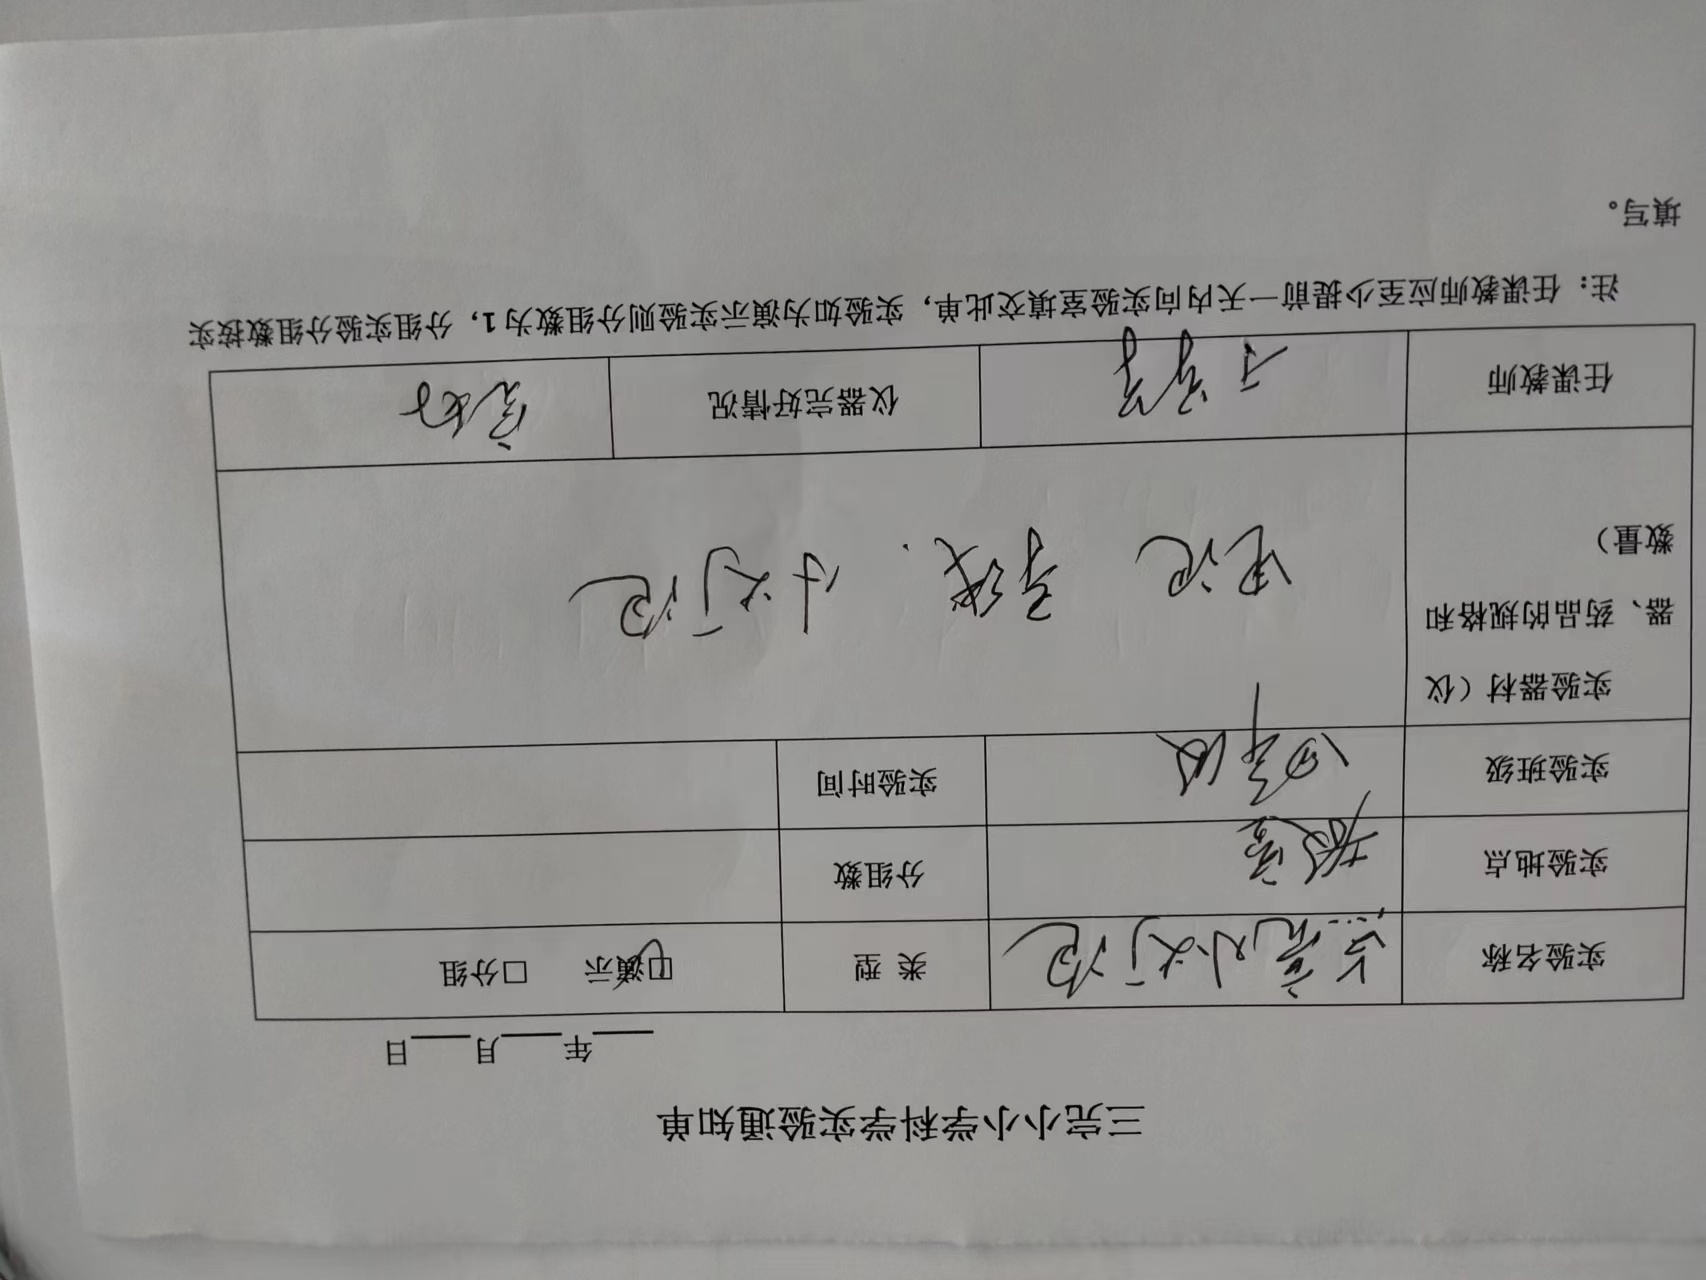 三完小小学科学实验通知单
___年___月___日
实验名称 点亮小灯泡 类 型 ☑演示 □分组
实验地点 教室 分组数
实验班级 四年级 实验时间
实验器材（仪器、药品的规格和数量） 电池 导线. 小灯泡
任课教师 仪器完好情况 完好
注：任课教师应至少提前一天内向实验室填交此单，实验如为演示实验则分组数为1，分组实验分组数按实
填写。